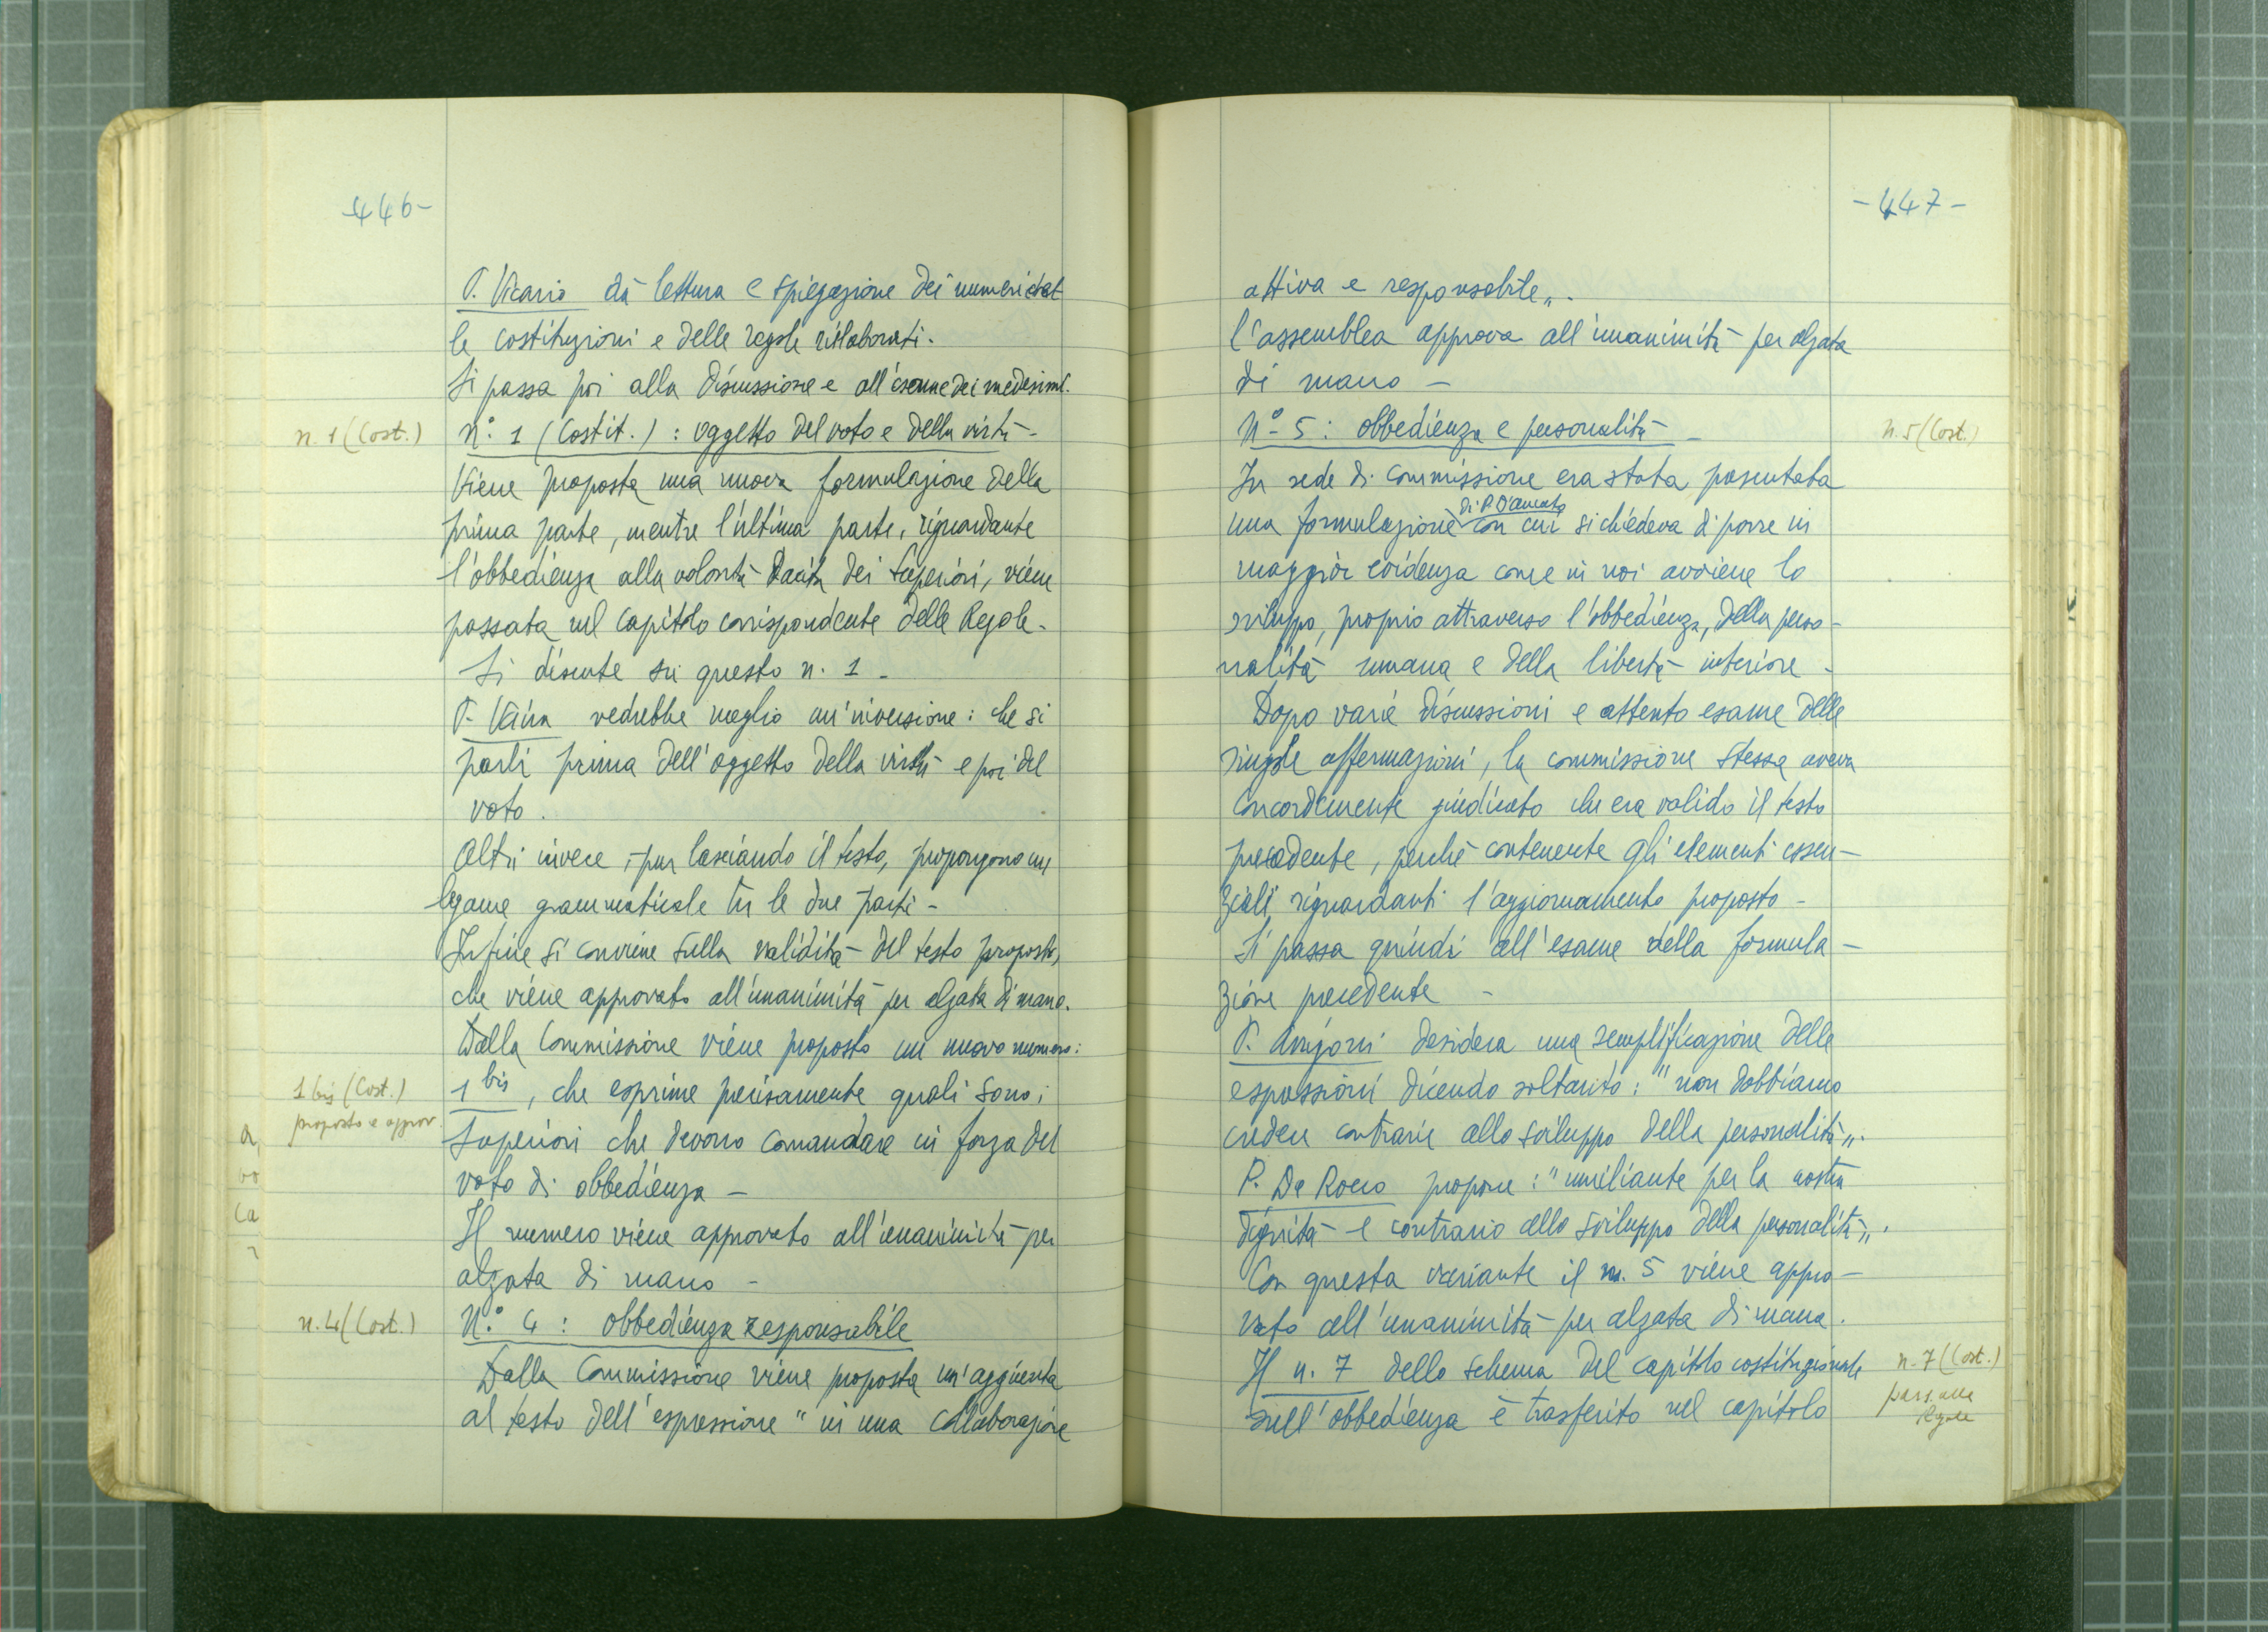 -446-
P. Vicario dà lettura e spiegazione dei numeri del
le costituzioni e delle regole rielaborati.
Si passa poi alla discussione e all'esame dei medesimi.
n. 1 (Cost.)
n.° 1 (Costit.) : oggetto del voto e della virtù -
Viene proposta una nuova formulazione della
prima parte, mentre l'ultima parte, riguardante
l'obbedienza alla volontà tacita dei Superiori, viene
passata nel capitolo corrispondente delle Regole.
Si discute su questo n. 1 -
P. Vaira vedrebbe meglio un'inversione: che si
parli prima dell'oggetto della virtù e poi del
voto.
Altri invece, pur lasciando il testo, propongono un
legame grammaticale tra le due parti -
Infine si conviene sulla validità del testo proposto,
che viene approvato all'unanimità per alzata di mano.
Dalla Commissione viene proposto un nuovo numero:
1 bis (Cost.)
proposto e approv.
1 bis, che esprime precisamente quali sono i
Superiori che devono comandare in forza del
voto di obbedienza -
Il numero viene approvato all'unanimità per
alzata di mano -
n. 4 (Cost.)
N.° 4 : obbedienza responsabile
Dalla Commissione viene proposta un'aggiunta
al testo dell'espressione " in una collaborazione
-447-
attiva e responsabile„.
l'assemblea approva all'unanimità per alzata
di mano -
N° 5 : obbedienza e personalità -
n. 5 (Cost.)
In sede di commissione era stata presentata
di P. D'Amato
una formulazione con cui si chiedeva di porre in
maggior evidenza come in noi avviene lo
sviluppo, proprio attraverso l'obbedienza, della perso-
nalità umana e della libertà interiore -
Dopo varie discussioni e attento esame delle
singole affermazioni, la commissione stessa aveva
concordemente giudicato che era valido il testo
precedente, perché contenente gli elementi essen-
ziali riguardanti l'aggiornamento proposto -
Si passa quindi all'esame della formula-
zione precedente -
P. Arrigoni desidera una semplificazione delle
espressioni dicendo soltanto: "non dobbiamo
credere contrarie allo sviluppo della personalità„.
P. De Rocco propone: "umiliante per la nostra
dignità e contrario allo sviluppo della personalità„.
Con questa variante il n. 5 viene appro-
vato all'unanimità per alzata di mano.
Il n. 7 dello schema del capitolo costituzionale
n. 7 (Cost.)
pass. alle
Regole
sull'obbedienza è trasferito nel capitolo